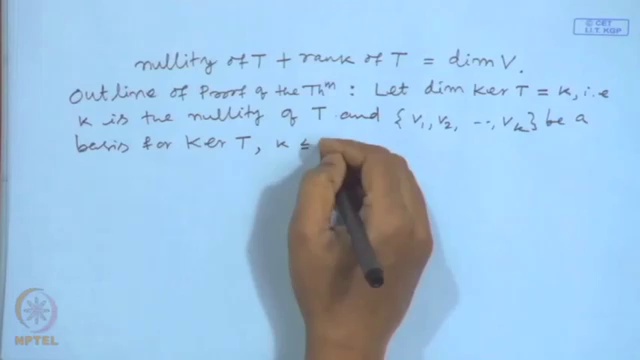 © CET
I.I.T. KGP
nullity of T + rank of T = dim V.
Outline of Proof of the Thm : Let dim Ker T = k, i.e
k is the nullity of T and {v1, v2, ..., vk} be a
basis for Ker T, k ≤
NPTEL